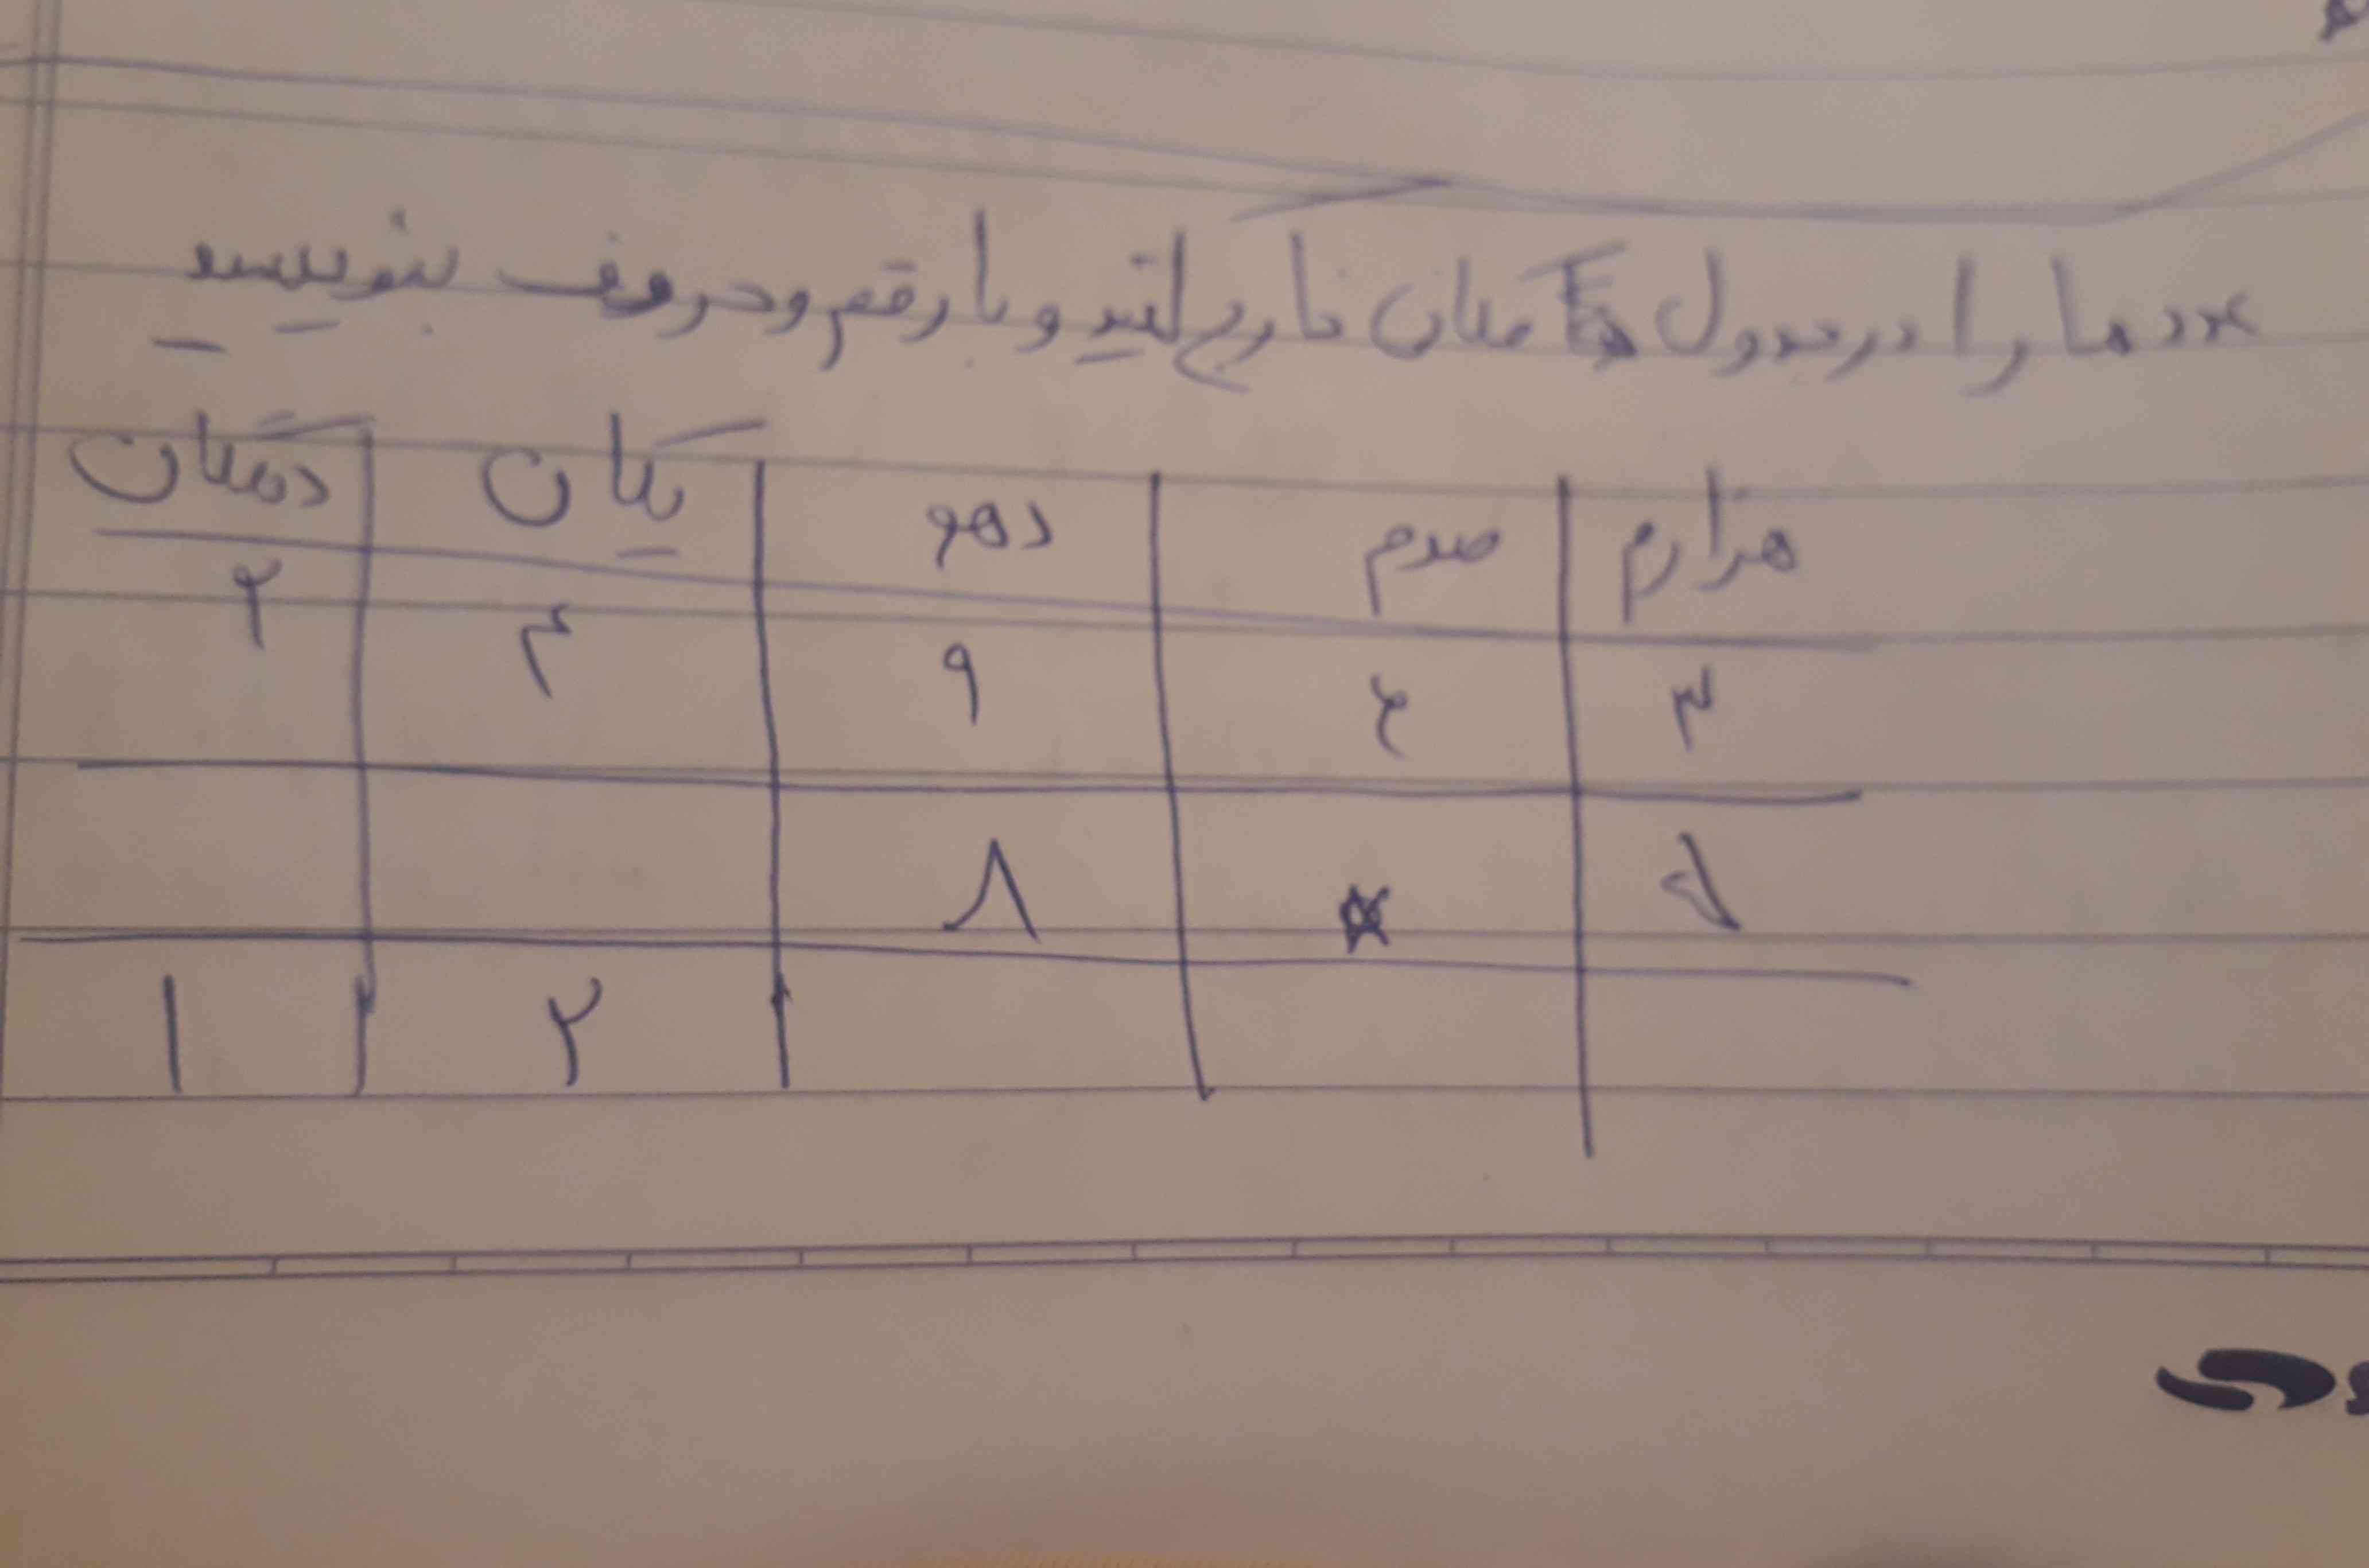 عددها را در جدول مکان خارج کنید و با رقم و حروف بنویسید
هزارم صدم دهم یکان دهگان
۳ ۴ ۹ ۳ ۲
۸
۲ ۱